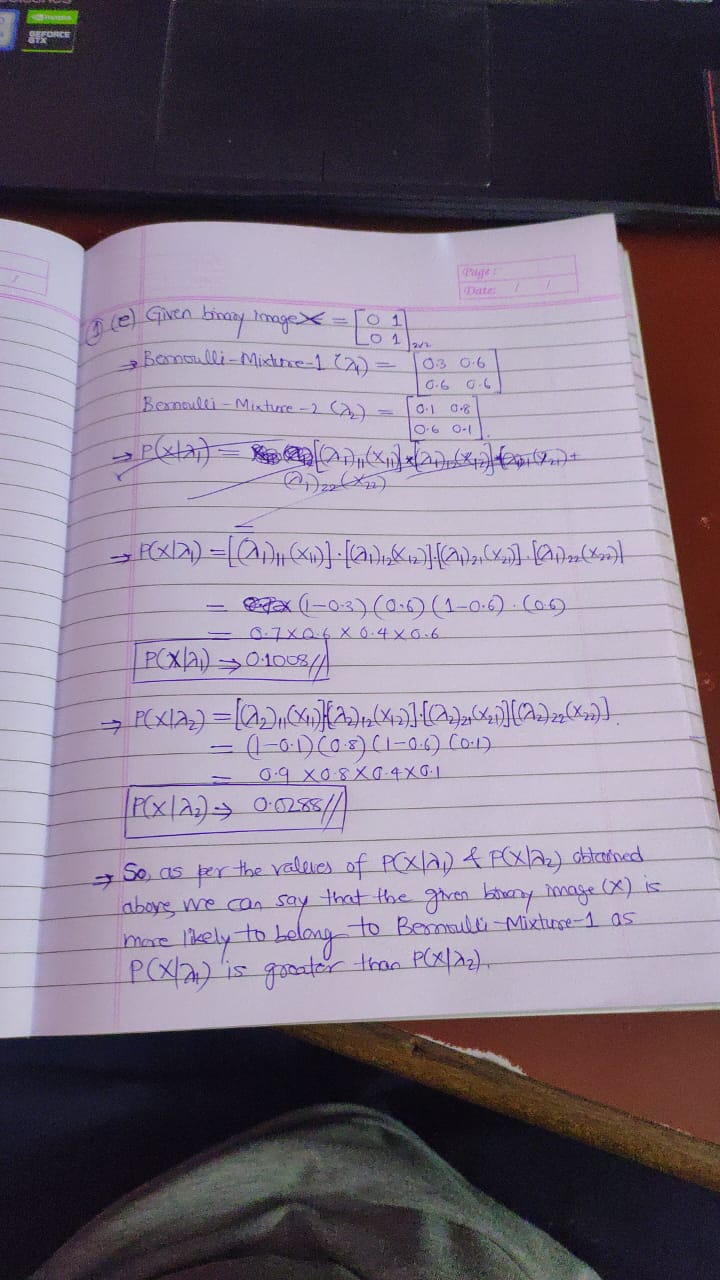 NVIDIA
GEFORCE
GTX
Page:
Date: / /
① (e) Given binary image X = [0 1
0 1]2x2
→ Bernoulli-Mixture-1 (λ1) = [0.3 0.6
0.6 0.6]
Bernoulli-Mixture-2 (λ2) = [0.1 0.8
0.6 0.1]
→ P(X|λ1) = [(λ1)11(X11)] [(λ1)12(X12)] (X21) +
(λ1)22(X22)
→ P(X|λ1) = [(λ1)11(X11)]·[(λ1)12(X12)]·[(λ1)21(X21)]·[(λ1)22(X22)]
= (1-0.3)(0.6)(1-0.6)·(0.6)
= 0.7X0.6X0.4X0.6
P(X|λ1) → 0.1008//
→ P(X|λ2) = [(λ2)11(X11)][(λ2)12(X12)]·[(λ2)21(X21)][(λ2)22(X22)].
= (1-0.1)(0.8)(1-0.6)(0.1)
= 0.9X0.8X0.4X0.1
P(X|λ2) → 0.0288//
→ So, as per the values of P(X|λ1) & P(X|λ2) obtained
above, we can say that the given binary image (X) is
more likely to belong to Bernoulli-Mixture-1 as
P(X|λ1) is greater than P(X|λ2).